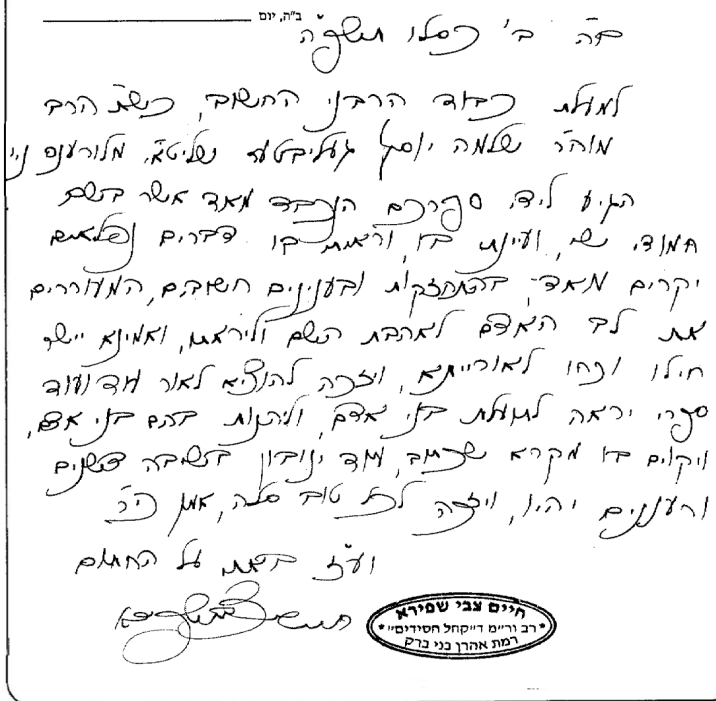 ב"ה, יום
בה ב' כסלו תשפ"ה
למעלת כבוד הרבני החשוב, כש"ת הרב
מוה"ר שלמה יוסף געליבטער שליט"א, מלורענס נ"י
הגיע לידי ספרכם הנכבד מאד אשר בשם
חמודי שי, ועיינתי בו, וראיתי בו דברים נפלאים
יקרים מאד, בהתחזקות ובענינים חשובים, המעוררים
את לב האדם לאהבת השם וליראתו, ואמינא יישר
חילו וכחו לאורייתא, ויזכה להוציא לאור עוד ועוד
ספרי יראה לתועלת בני אדם, וליהנות בהם בני אדם,
ויקוים בו מקרא שכתוב, עוד ינובון בשיבה דשנים
ורעננים יהיו, ויזכה לכל טוב סלה, אמן כי"ר
ועז באתי על החתום
חיים צבי שפירא
חיים צבי שפירא
רב ור"מ ד"קהל חסידים"
רמת אהרן בני ברק